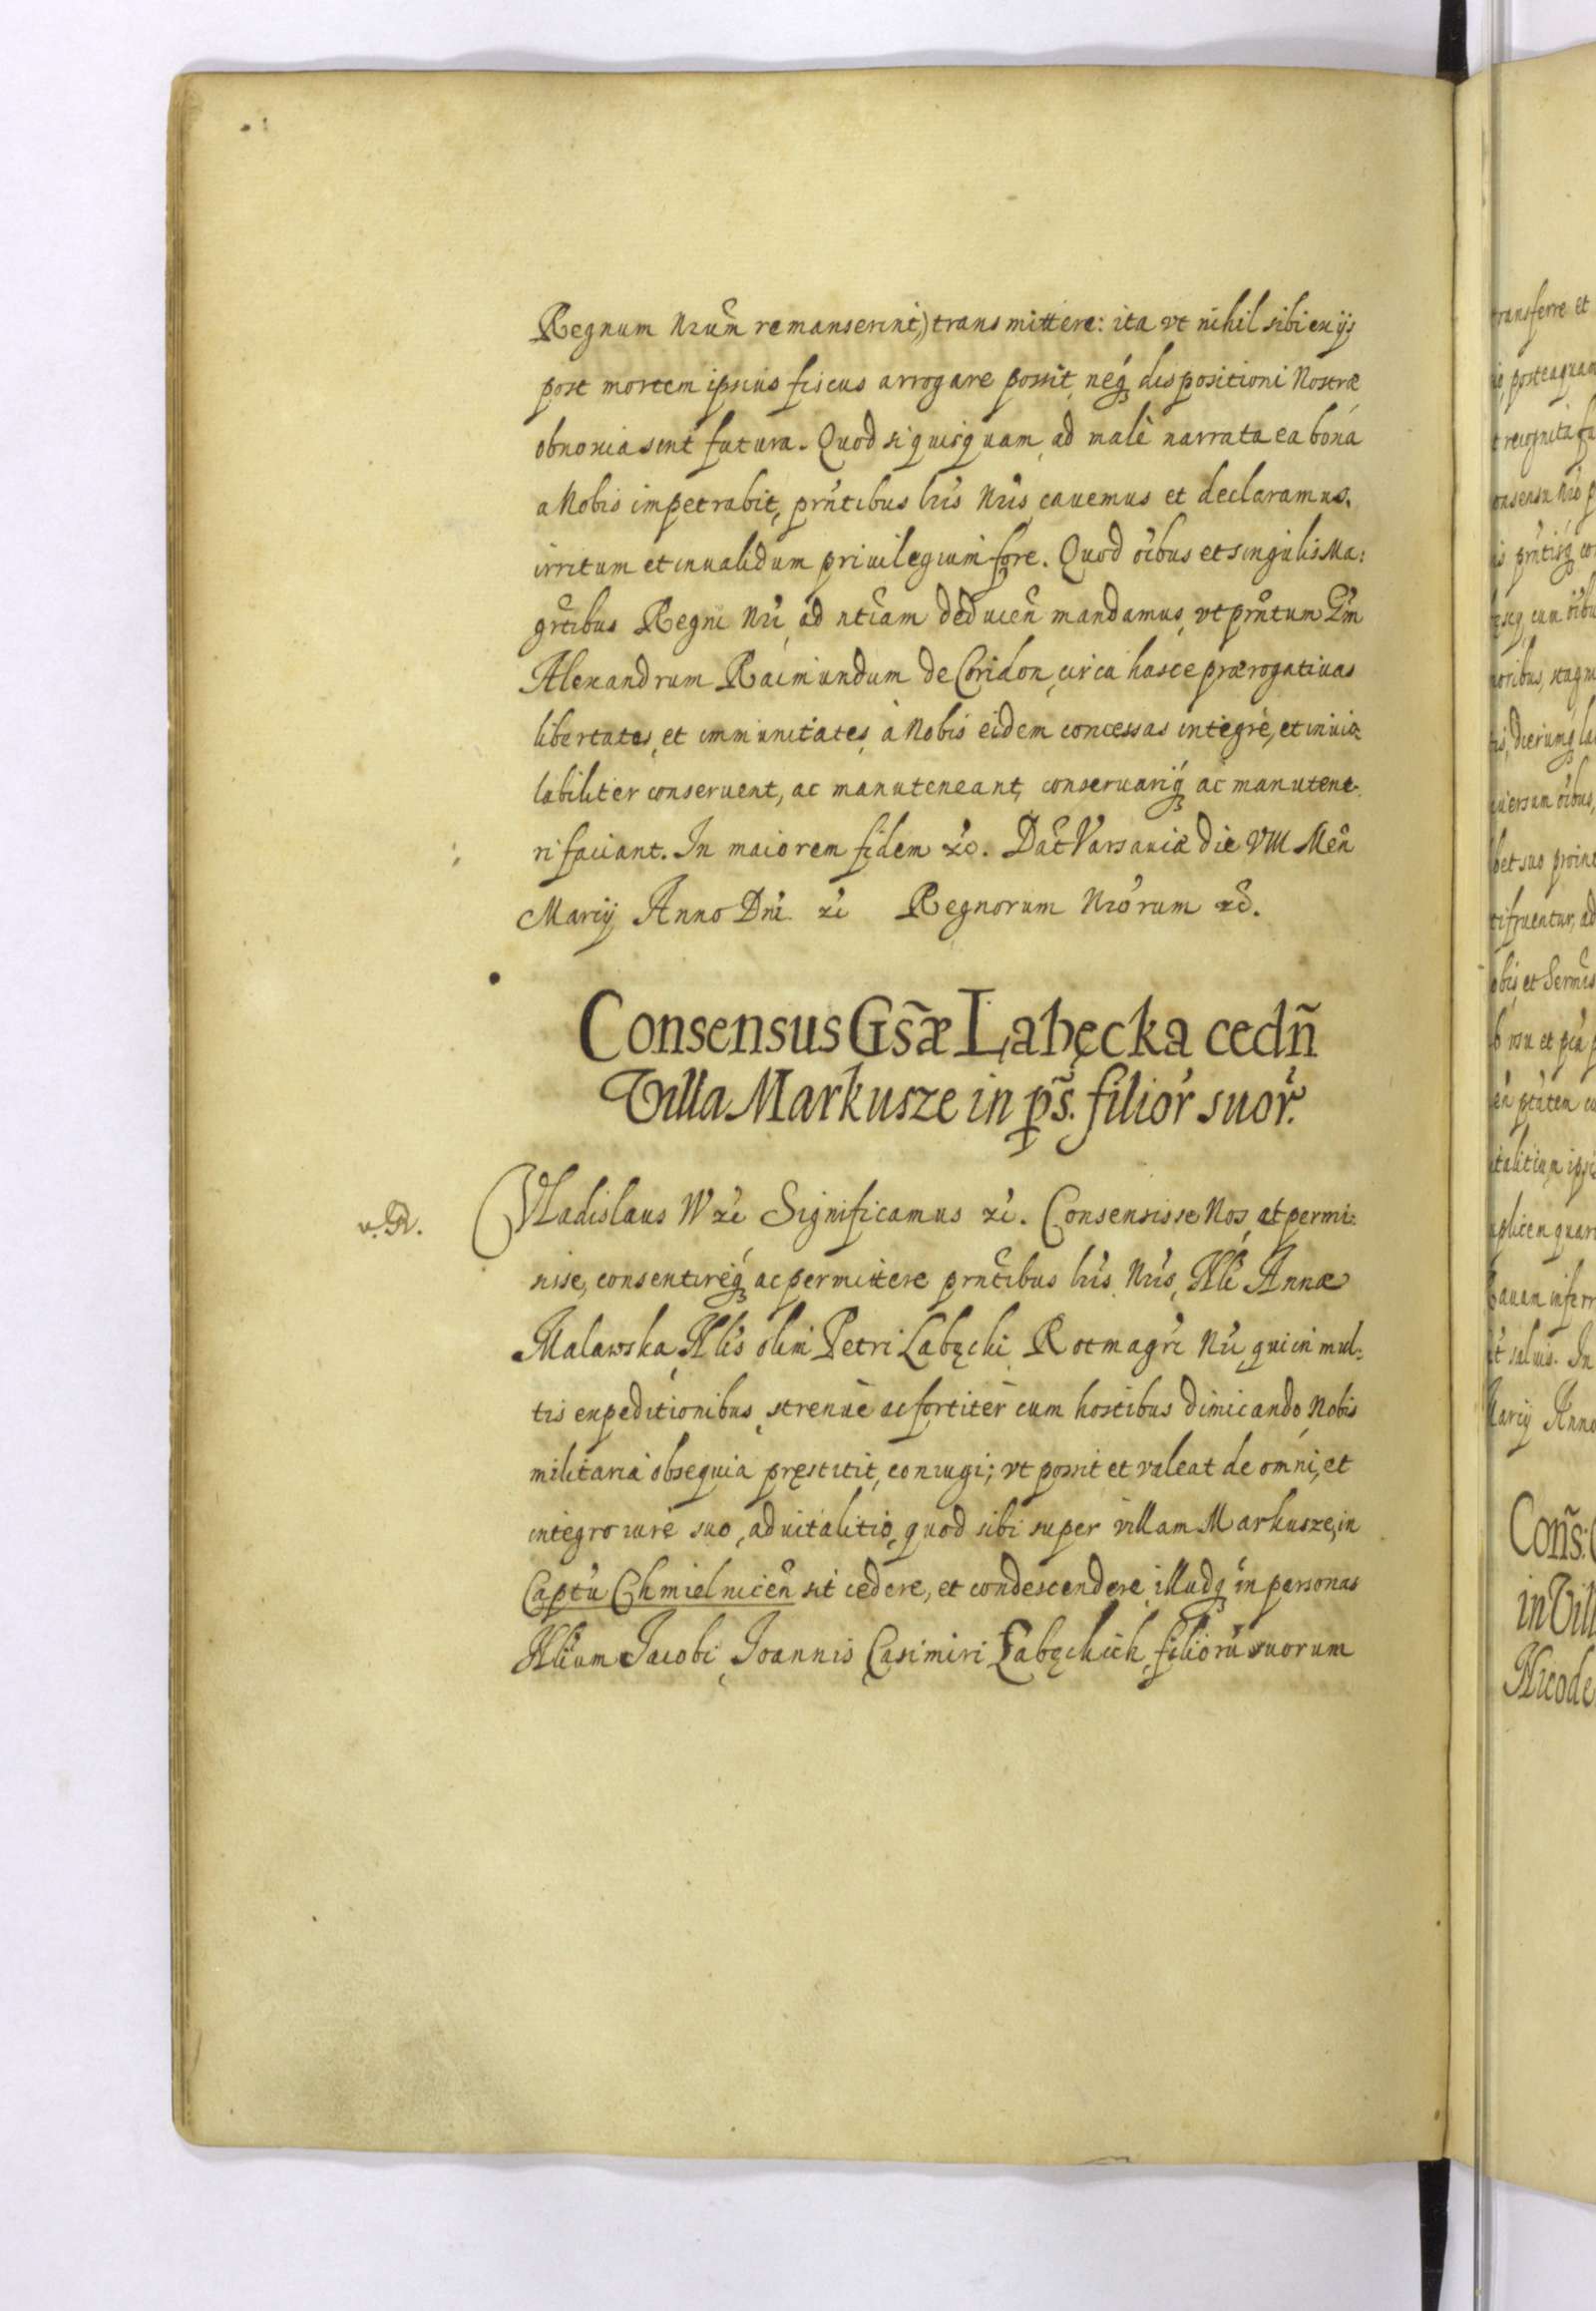 Regnum Nrum remanserint,) transmittere: ita vt nihil sibi ex ijs
post mortem ipsius fiscus arrogare possit, neq́ dispositioni Nostræ
obnoxia sint futura. Quod si quisquam, ad malè narrata ea bona
a Nobis impetrabit, prńtibus lrís Nrís cauemus et declaramus,
irritum et inualidum priuilegium fore. Quod oíbus et singulis Ma:
grtibus Regni Nrí, ad ntíam deducen mandamus, vt prńtum Gm
Alexandrum Raimundum de Coridon, circa hasce prærogatiuas
libertates, et immunitates, à Nobis eidem concessas integrè, et inuio:
labiliter conseruent, ac manuteneant, conseruariq́ ac manutene-
ri faciant. In maiorem fidem xc. Dat Varsauiæ Die VIII Men
Marcij Anno Dni xc Regnorum Nrorum xc.
Consensus Gs̃æ Łabęcka cedñ
Villa Markusze in ps̃. filior suor.
v. R.
Vladislaus IV xc Significamus xc. Consensisse Nos, at permi:
sisse, consentireq́ ac permittere prńtibus lrís Nrís, Nlí Annæ
Malawska, Nlís olim Petri Łabęcki Rotmagri Nrí, qui in mul:
tis expeditionibus, strenuè ac fortitèr cum hostibus dimicando, Nobis
militaria obsequia pręstitit, coniugi; vt possit et valeat de omni, et
integro iure suo, aduitalitio, quod sibi super villam Markusze, in
Captu Chmielnicen sit cedere, et condescendere, illudq́ in personas
Nlium Jacobi, Joannis Casimiri Łabęckich, filiorũ suorum